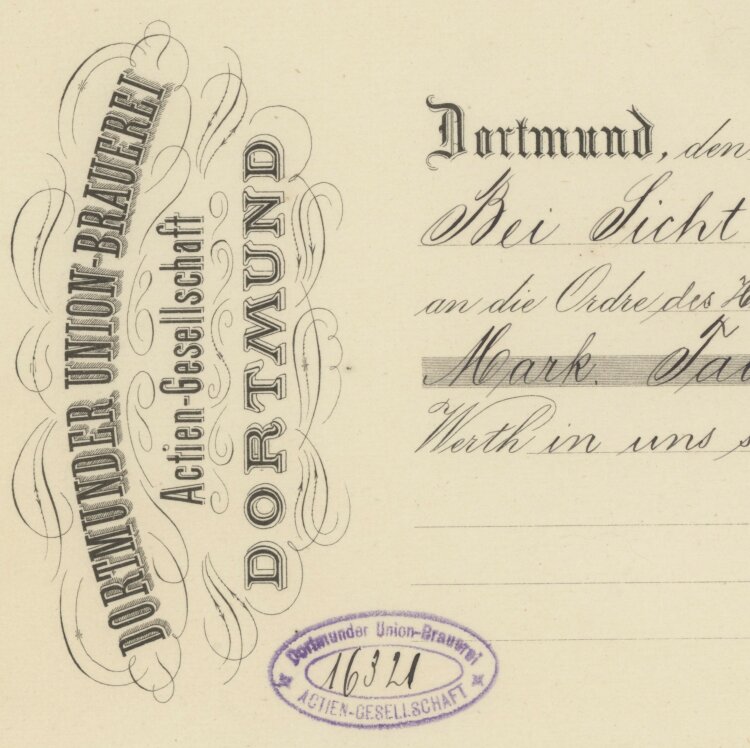 DORTMUNDER UNION-BRAUEREI
Actien-Gesellschaft
DORTMUND
Dortmund, den
Bei Sicht
an die Ordre des H
Mark. Tau
Werth in uns s
Dortmunder Union-Brauerei
16321
ACTIEN-GESELLSCHAFT